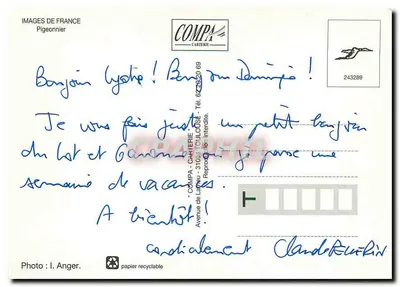 IMAGES DE FRANCE
Pigeonnier
COMPA
CARTERIE
243289
Bonjour ! Bonjour !
Je vous fais juste un petit bonjour
du Lot et Garonne où je passe une
semaine de vacances.
A bientôt !
cordialement Claude PELLERIN
"COMPA - CARTERIE"
Reprod. interdite.
Photo : I. Anger.
papier recyclable